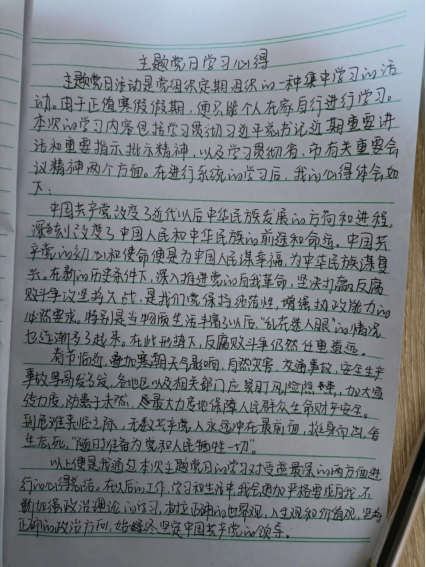 主题党日学习心得
主题党日活动是党组织定期组织的一种集中学习的活
动。由于正值寒假假期，便只能个人在家自行进行学习。
本次的学习内容包括学习贯彻习近平总书记近期重要讲
话和重要指示批示精神，以及学习贯彻省、市有关重要会
议精神两个方面。在进行系统的学习后，我的心得体会如
下：
中国共产党改变了近代以后中华民族发展的方向和进程，
深刻改变了中国人民和中华民族的前途和命运。中国共
产党的初心和使命便是为中国人民谋幸福，为中华民族谋复
兴。在新的历史条件下，深入推进党的自我革命，坚决打赢反腐
败斗争攻坚持久战，是我们党保持纯洁性，增强执政能力的
必然要求。特别是当物质生活丰富了以后，“乱花迷人眼”的情况
也逐渐多了起来，在此形势下，反腐败斗争仍然任重道远。
春节临近，叠加寒潮天气影响，自然灾害、交通事故、安全生产
事故易易发多发，各地区以及相关部门应紧盯风险隐，加大宣
传力度，防患于未然，尽最大力度地保障人民群众生命财产安全。
到危难来临之际，无数共产党人永远冲在最前面，挺身向前，舍
生忘死，“随时准备为党和人民牺牲一切”。
以上便是我通过本次主题党日的学习对感触最深的两方面进
行的心得总结。在以后的工作、学习和生活中，我会更加严格要求自我，不
断加强政治理论的学习，树立正确的世界观、人生观和价值观，坚持
正确的政治方向，始终坚定中国共产党的领导。